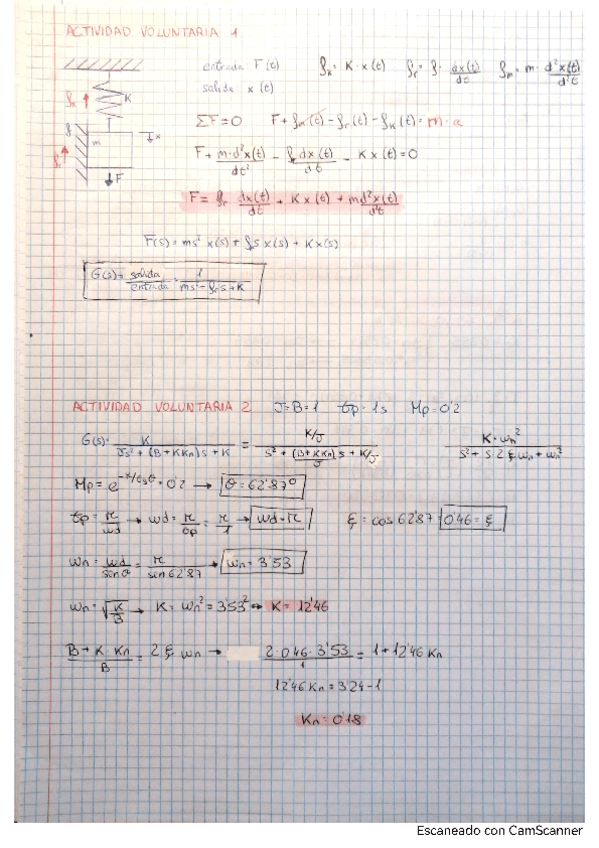 ACTIVIDAD VOLUNTARIA 1
entrada F(t)   fk = K · x(t)   fr = f · dx(t)/dt   fm = m · d²x(t)/d²t
salida x(t)
fk K
ΣF=0   F + fm(t) - fr(t) - fK(t) = m·a
f m x
F + m·d²x(t)/dt² - fr dx(t)/dt - K x(t) = 0
F
F = fr dx(t)/dt + K x(t) + m d²x(t)/d²t
F(s) = ms² x(s) + frs x(s) + K x(s)
G(s) = salida/entrada = 1/(ms² - fr s + K)
ACTIVIDAD VOLUNTARIA 2   J=B=1   tp = 1s   Mp=0'2
G(s) = K/(Js² + (B+KKn)s + K) = (K/J)/(s² + ((B+KKn)/J)s + K/J)   K·wn²/(s² + s·2ξwn + wn²)
Mp = e^(-π/tgθ) = 0'2 → θ = 62'87°
tp = π/wd → wd = π/tp = π/1 → wd = π   ξ = cos 62'87 0'46 = ξ
wn = wd/senθ = π/sin 62'87 → wn = 3'53
wn = √(K/B) → K = wn² = 3'53² → K = 12'46
(B + K·Kn)/B = 2 ξ wn → (2·0'46·3'53)/1 = 1 + 12'46 Kn
12'46 Kn = 3'24 - 1
Kn = 0'18
Escaneado con CamScanner